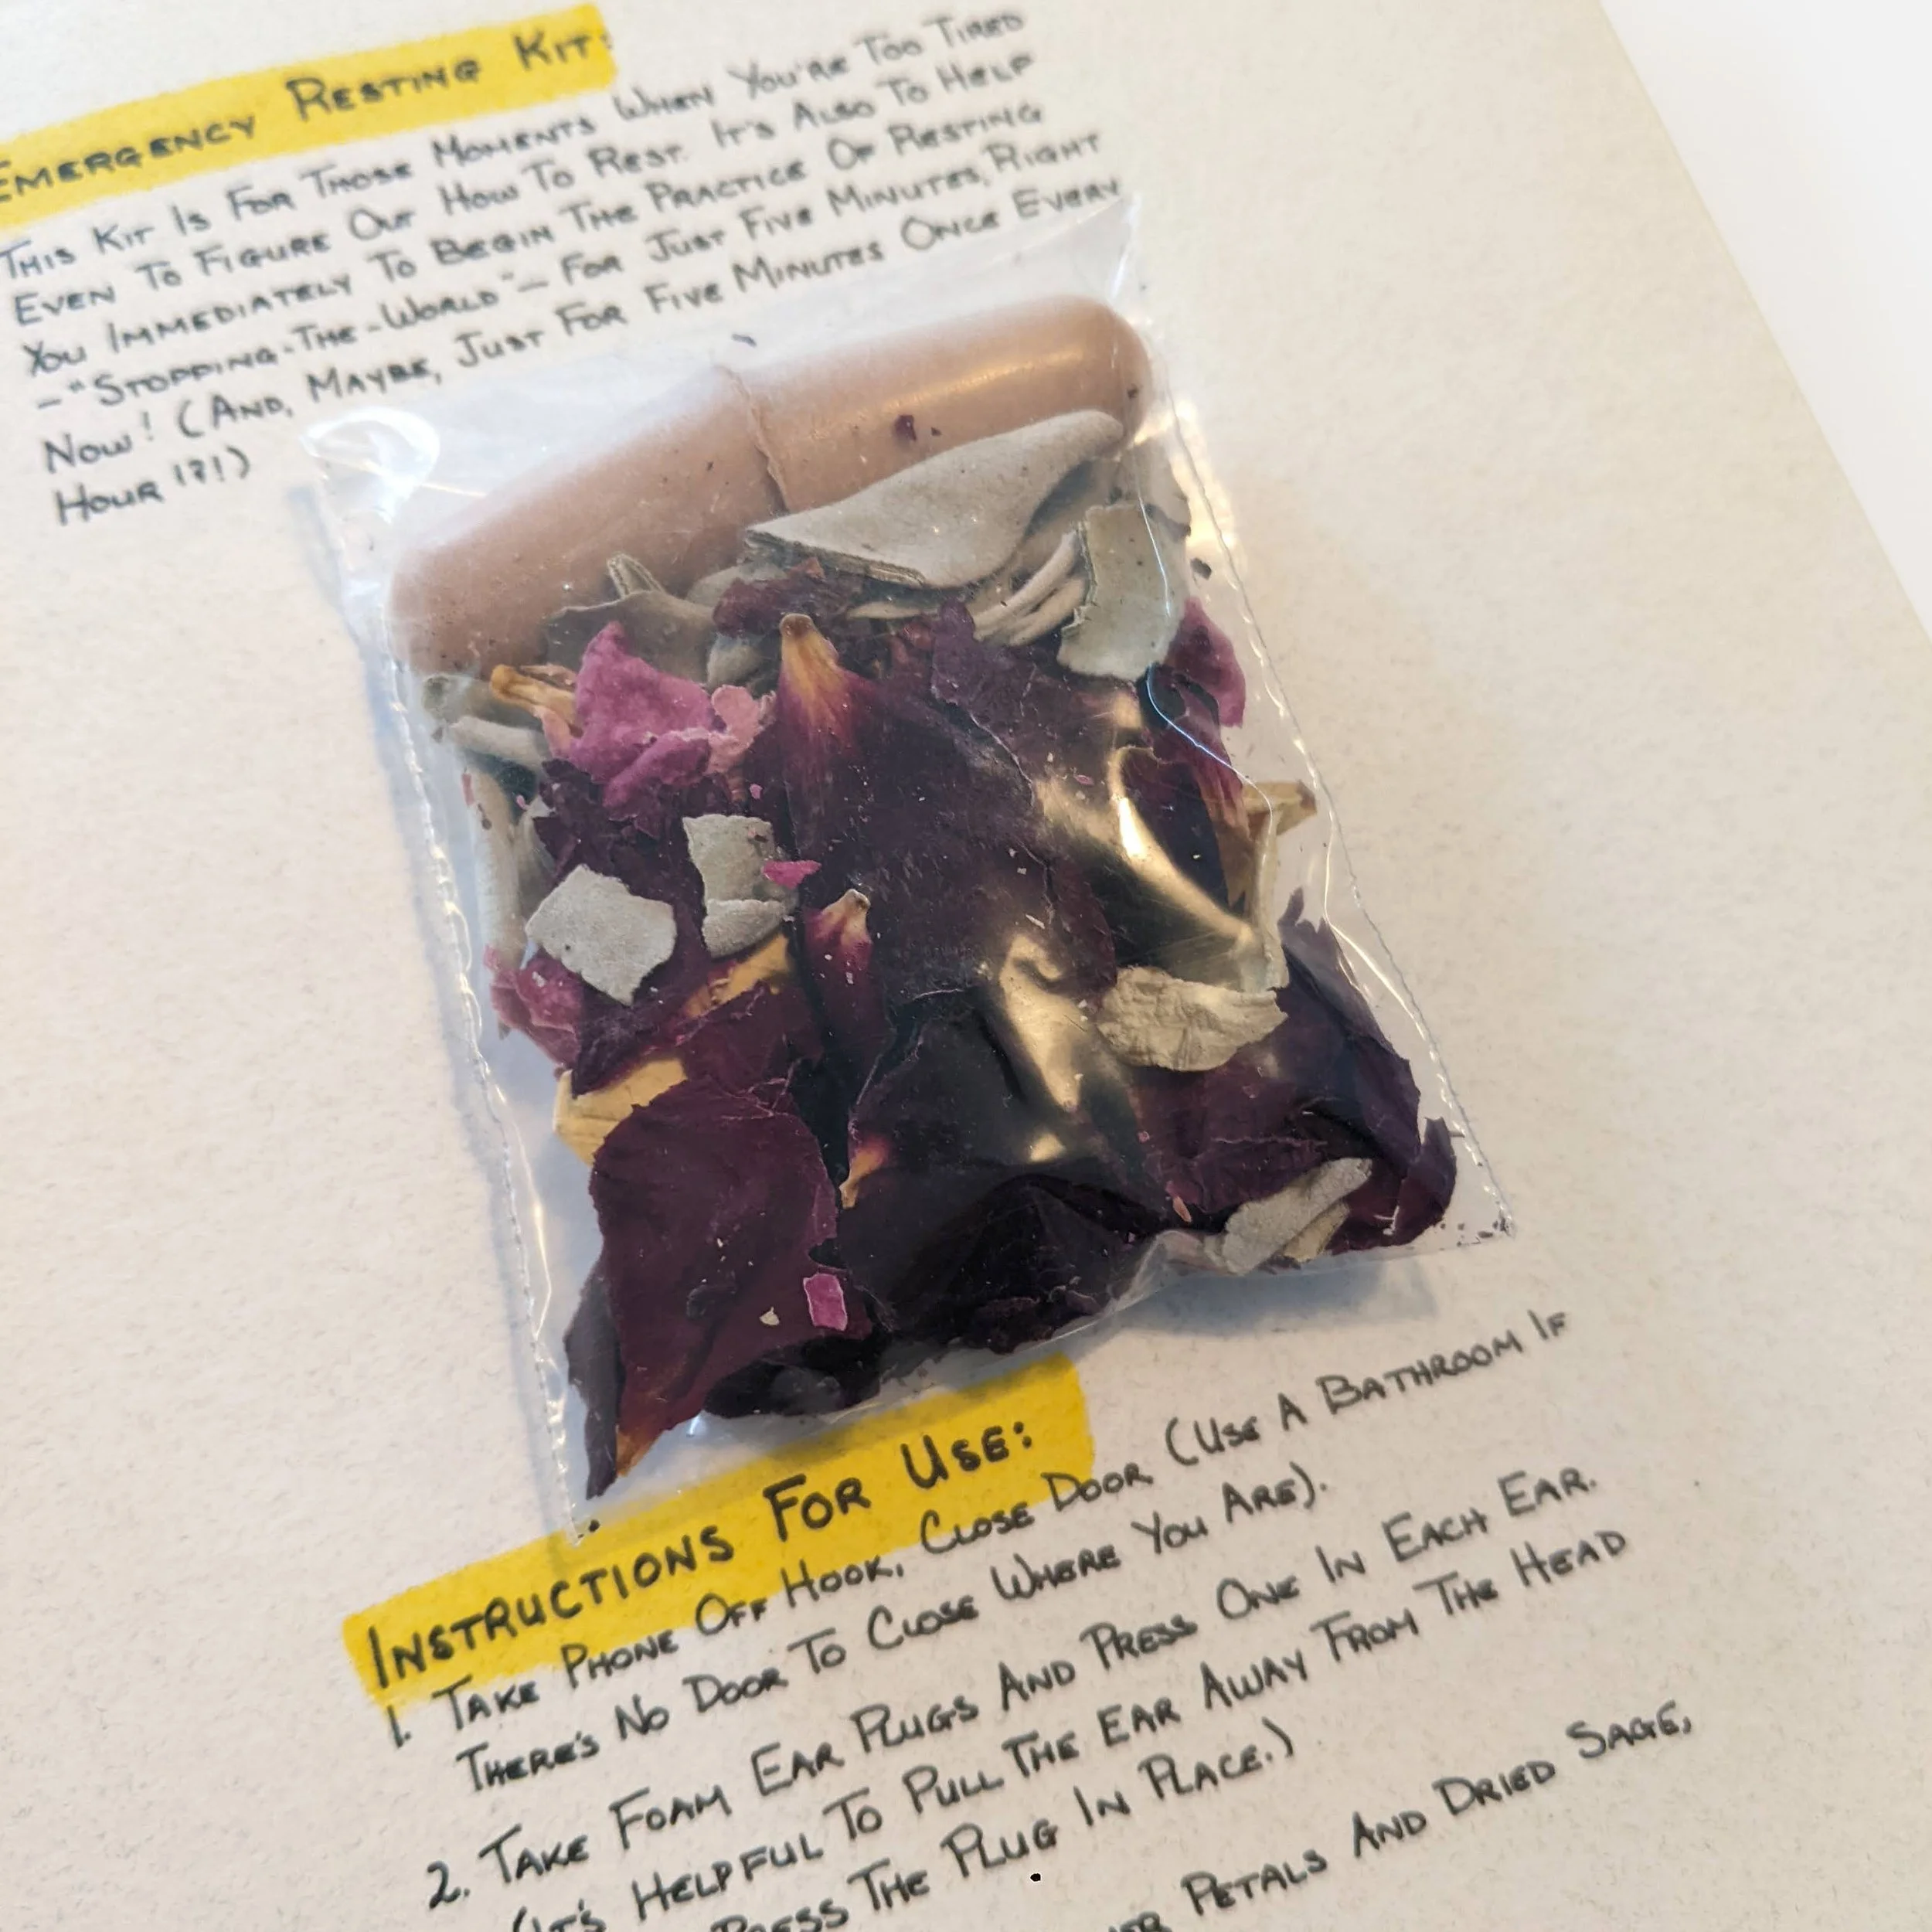 Emergency Resting Kit:
This Kit Is For Those Moments When You're Too Tired
Even To Figure Out How To Rest. It's Also To Help
You Immediately To Begin The Practice Of Resting
—"Stopping-The-World"— For Just Five Minutes, Right
Now! (And, Maybe, Just For Five Minutes Once Every
Hour!?!)
Instructions For Use:
1. Take Phone Off Hook, Close Door (Use A Bathroom If
There's No Door To Close Where You Are).
2. Take Foam Ear Plugs And Press One In Each Ear.
(It's Helpful To Pull The Ear Away From The Head
Press The Plug In Place.)
Petals And Dried Sage,